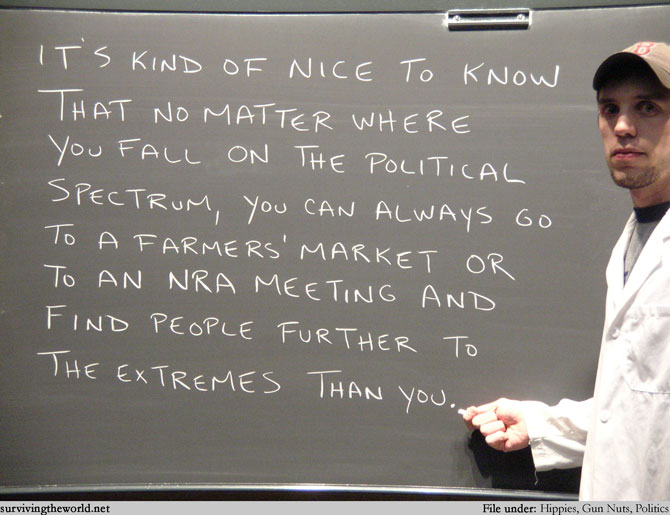 IT'S KIND OF NICE TO KNOW
THAT NO MATTER WHERE
YOU FALL ON THE POLITICAL
SPECTRUM, YOU CAN ALWAYS GO
TO A FARMERS' MARKET OR
TO AN NRA MEETING AND
FIND PEOPLE FURTHER TO
THE EXTREMES THAN YOU.
B
survivingtheworld.net
File under: Hippies, Gun Nuts, Politics